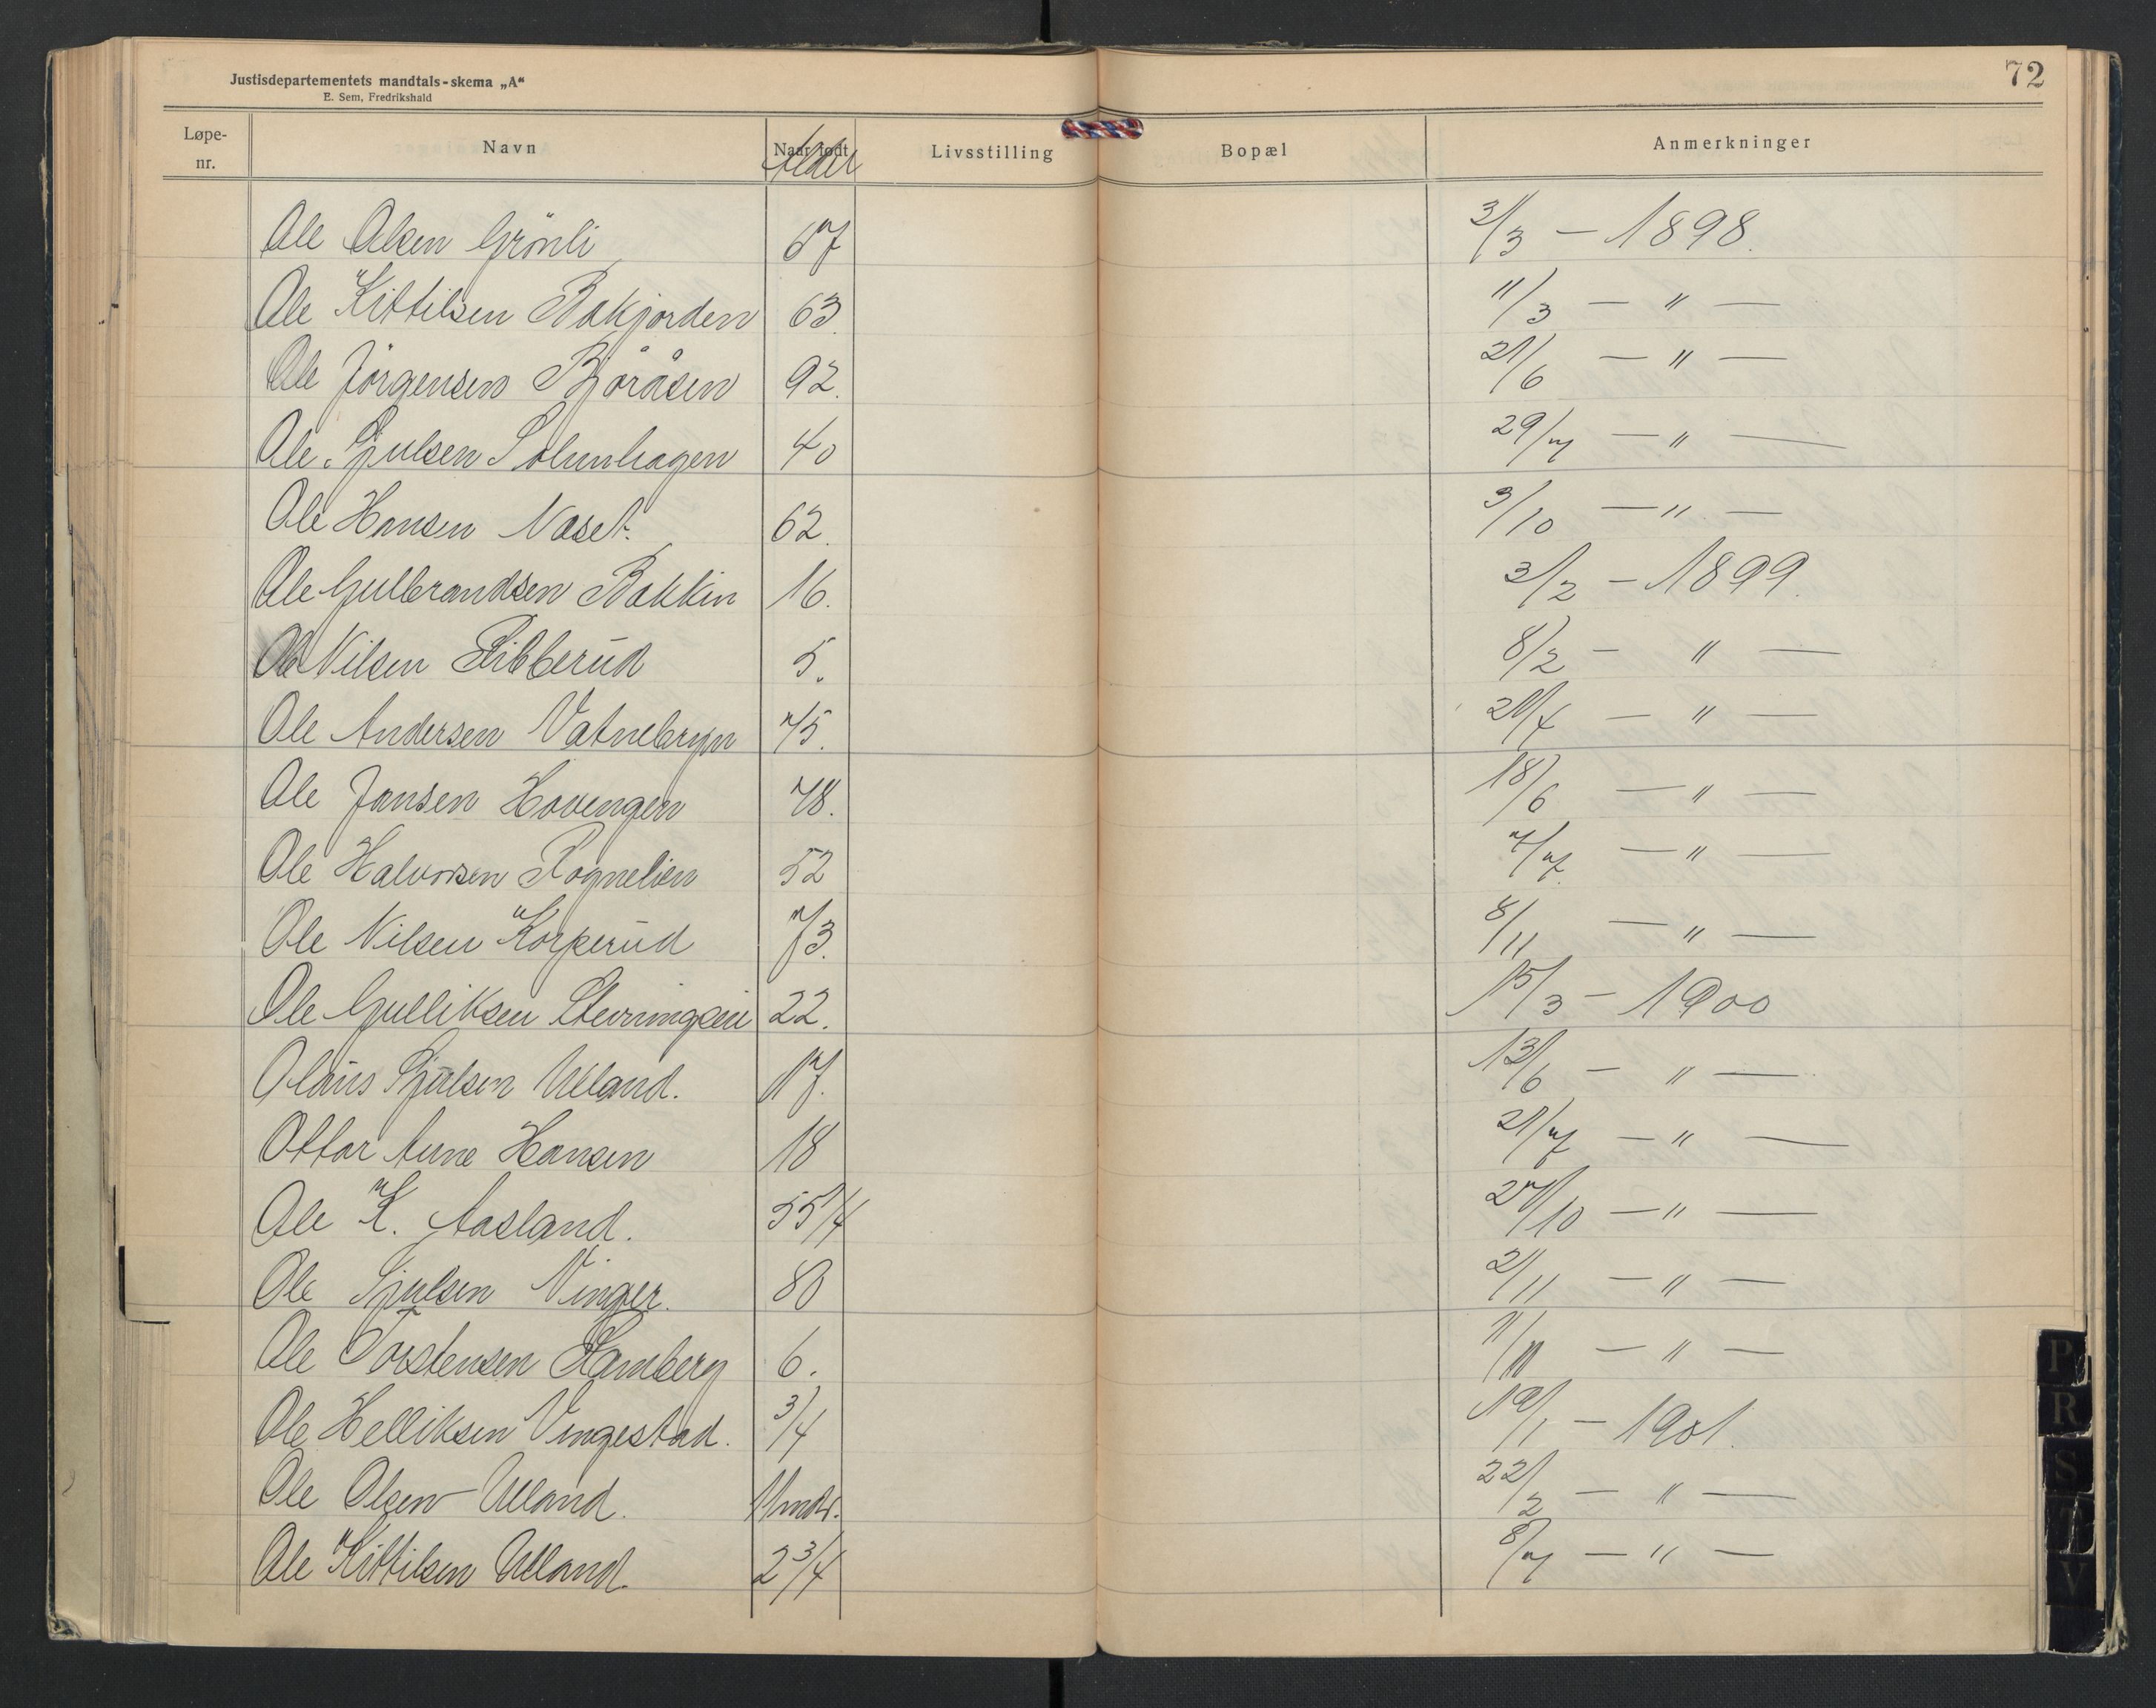 Justisdepartementets mandtals-skema „A“
E. Sem, Fredrikshald
72
Løpe-nr. Navn Naar født Alder Livsstilling Bopæl Anmerkninger
Ole Olsen Grönli 67 3/3 — 1898.
Ole Kittilsen Bakjorden 63. 11/3 — " —
Ole Jörgensen Björåsen 92. 21/6 — " —
Ole Gjulsen 40 29/7 — " —
Ole Hansen Naset. 62. 3/10 — " —
Ole Gulbrandsen Bakkin 16. 3/2 — 1899.
Ole Nilsen Ribberud 5. 8/2 — " —
Ole Andersen Vatnebryn 75. — " —
Ole Jansen Hovengen 78. 18/6 — " —
Ole Halvorsen Rognelien 52 — " —
Ole Nilsen Korperud 73. 8/11 — " —
Ole Gulliksen 22. 15/3 — 1900
Olaus Gjulsen Ulland. 17. 13/6 — " —
Ottar Aune Hansen 18 21/7 — " —
Ole K. Aasland. 55 1/4 27/10 — " —
Ole Gjulsen Vinger. 80 2/11 — " —
Ole Torstensen Hamberg 6. — " —
Ole Helliksen Vingestad. 3/4 19/1 — 1901.
Ole Olsen Ulland. 11 mdr. 22/2 — " —
Ole Kittilsen Ulland. 2 3/4 8/7 — " —
P
R
S
T
V